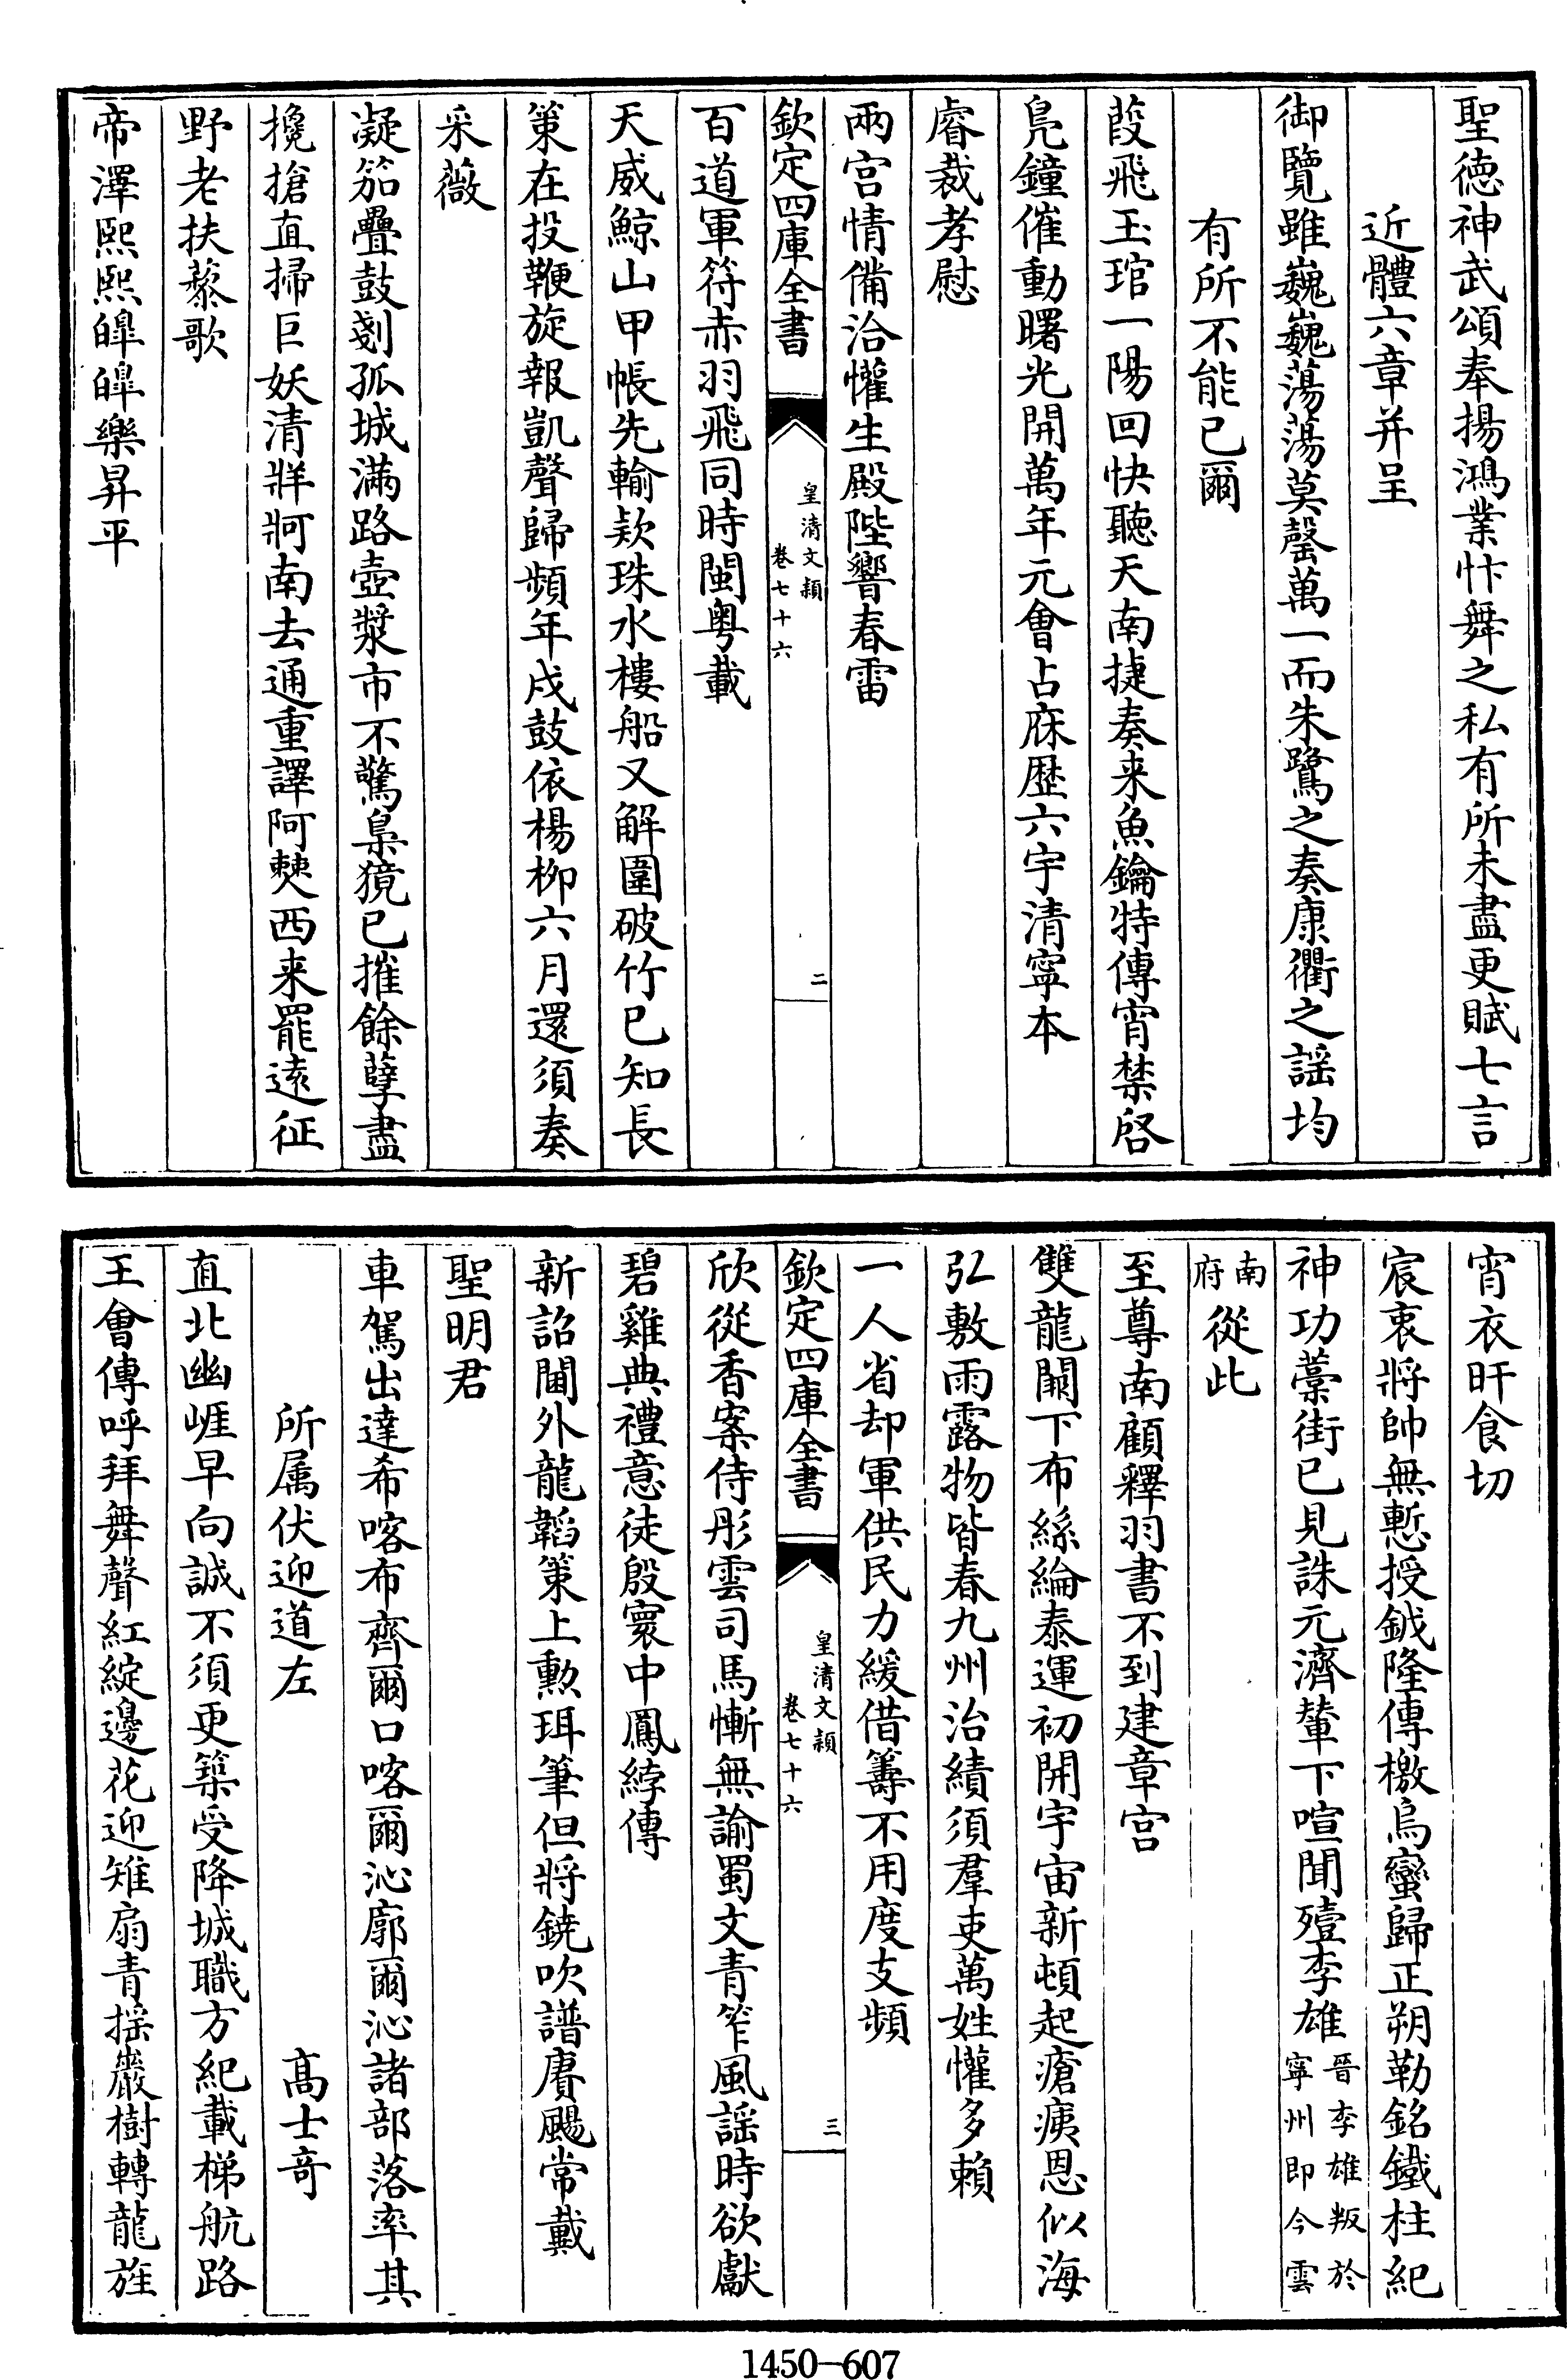 聖徳神武頌奉揚鴻業忭舞之私有所未盡更賦七言
近體六章并呈
御覽雖巍巍蕩蕩莫罄萬一而朱鷺之奏康衢之謡均
有所不能已爾
葭飛玉琯一陽回快聽天南捷奏来魚鑰特傳宵禁啓
鳬鐘催動曙光開萬年元會占庥歴六宇清寧本
睿裁孝慰
兩宫情備洽懽生殿陛響春雷
欽定四庫全書
皇清文穎
卷七十六
二
百道軍符赤羽飛同時閩粤載
天威鯨山甲帳先輸欵珠水樓船又解圍破竹已知長
策在投鞭旋報凱聲歸頻年戍鼓依楊柳六月還須奏
采薇
凝笳疊鼓剗孤城滿路壺漿市不驚梟獍已摧餘孽盡
攙搶直掃巨妖清牂牁南去通重譯阿㸑西来罷逺征
野老扶藜歌
帝澤熙熙皥皥樂昇平
宵衣旰食切
宸衷將帥無慙授鉞隆傳檄烏蠻歸正朔勒銘鐵柱紀
神功藁街已見誅元濟輦下喧聞殪李雄晉李雄叛於寧州即今雲
南府從此
至尊南顧釋羽書不到建章宫
雙龍闕下布絲綸泰運初開宇宙新頓起瘡痍恩似海
弘敷雨露物皆春九州治績須羣吏萬姓懽多賴
一人省却軍供民力緩借籌不用度支頻
欽定四庫全書
皇清文穎
卷七十六
三
欣從香案侍彤雲司馬慚無諭蜀文青笮風謡時欲獻
碧雞典禮意徒殷寰中鳳綍傳
新詔閫外龍韜策上勲珥筆但將鐃吹譜賡颺常戴
聖明君
車駕出達希喀布齊爾口喀爾沁廓爾沁諸部落率其
所属伏迎道左
髙士竒
直北幽崕早向誠不須更築受降城職方紀載梯航路
王會傳呼拜舞聲紅綻邊花迎雉扇青揺巖樹轉龍旌
1450—607